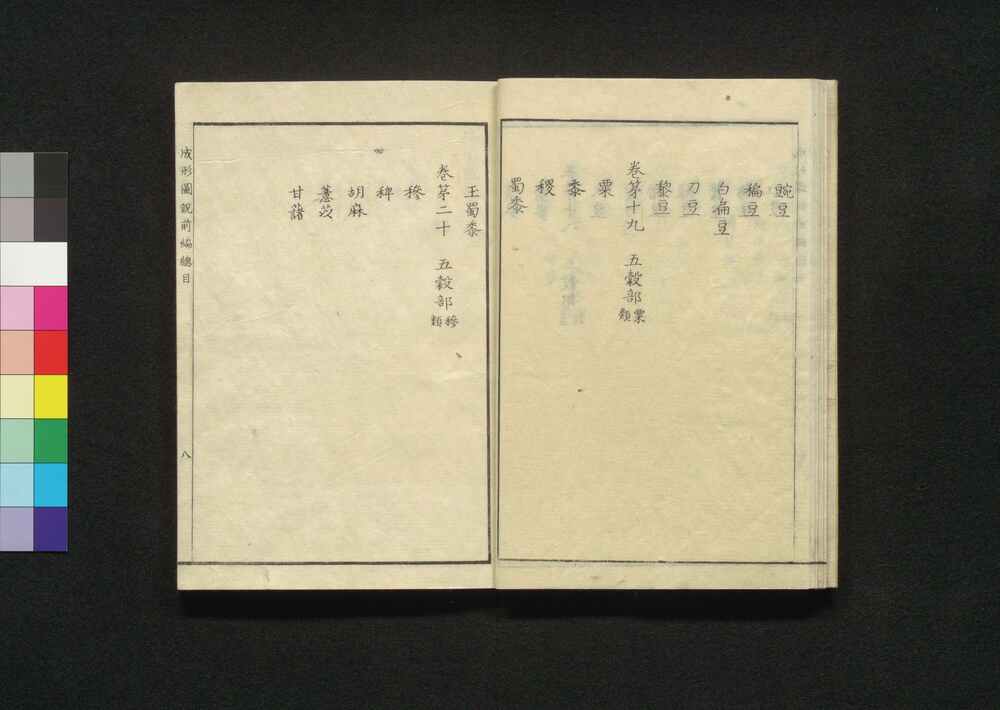 豌豆
穞豆
白扁豆
刀豆
黎豆
卷第十九　五穀部粟類
粟
黍
稷
蜀黍
玉蜀黍
卷第二十　五穀部穇類
穇
稗
胡麻
薏苡
甘藷
成形圖說前編總目
八